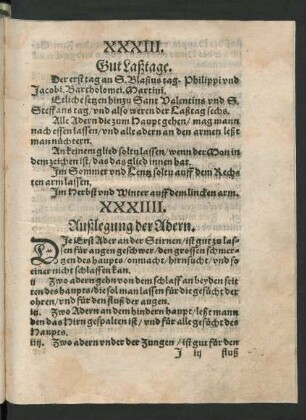 XXXIII.
Gut Laßtage.
Der erst tag an S. Blasius tag. Philippi vnd
Jacobi. Bartholomei. Martini.
Etliche setzen hinzu Sant Valentins vnd S.
Steffans tag / vnd also weren der Laßtag sechs.
Alle Adern die zum Haupt gehen / mag mann
nach essen lassen / vnd alle adern an den armen leßt
man nüchtern.
An keinem glied soltu lassen / wenn der Mon in
dem zeichen ist / das das glied innen hat.
Im Sommer vnd Lentz soltu auff dem Rech-
ten arm lassen.
Im Herbst vnd Winter auff dem lincken arm.
XXXIIII.
Außlegung der Adern.
DIe Erst Ader an der Stirnen / ist gut zu las-
sen für augen geschwer / den grossen schmer-
gen des haupts / onmacht / hirnsucht / vnd so
einer nicht schlaffen kan.
ij Zwo adern gehn von dem schlaff an beyden sei-
ten des haupts / die sol man lassen für die gesücht der
ohren / vnd für den fluß der augen.
iij. Zwo Adern an dem hindern haupt / leßt mann
den das Hirn gespalten ist / vnd für alle gesücht des
Haupts.
iiij. Zwo adern vnder der Zungen / ist gut für den
J iij fluß